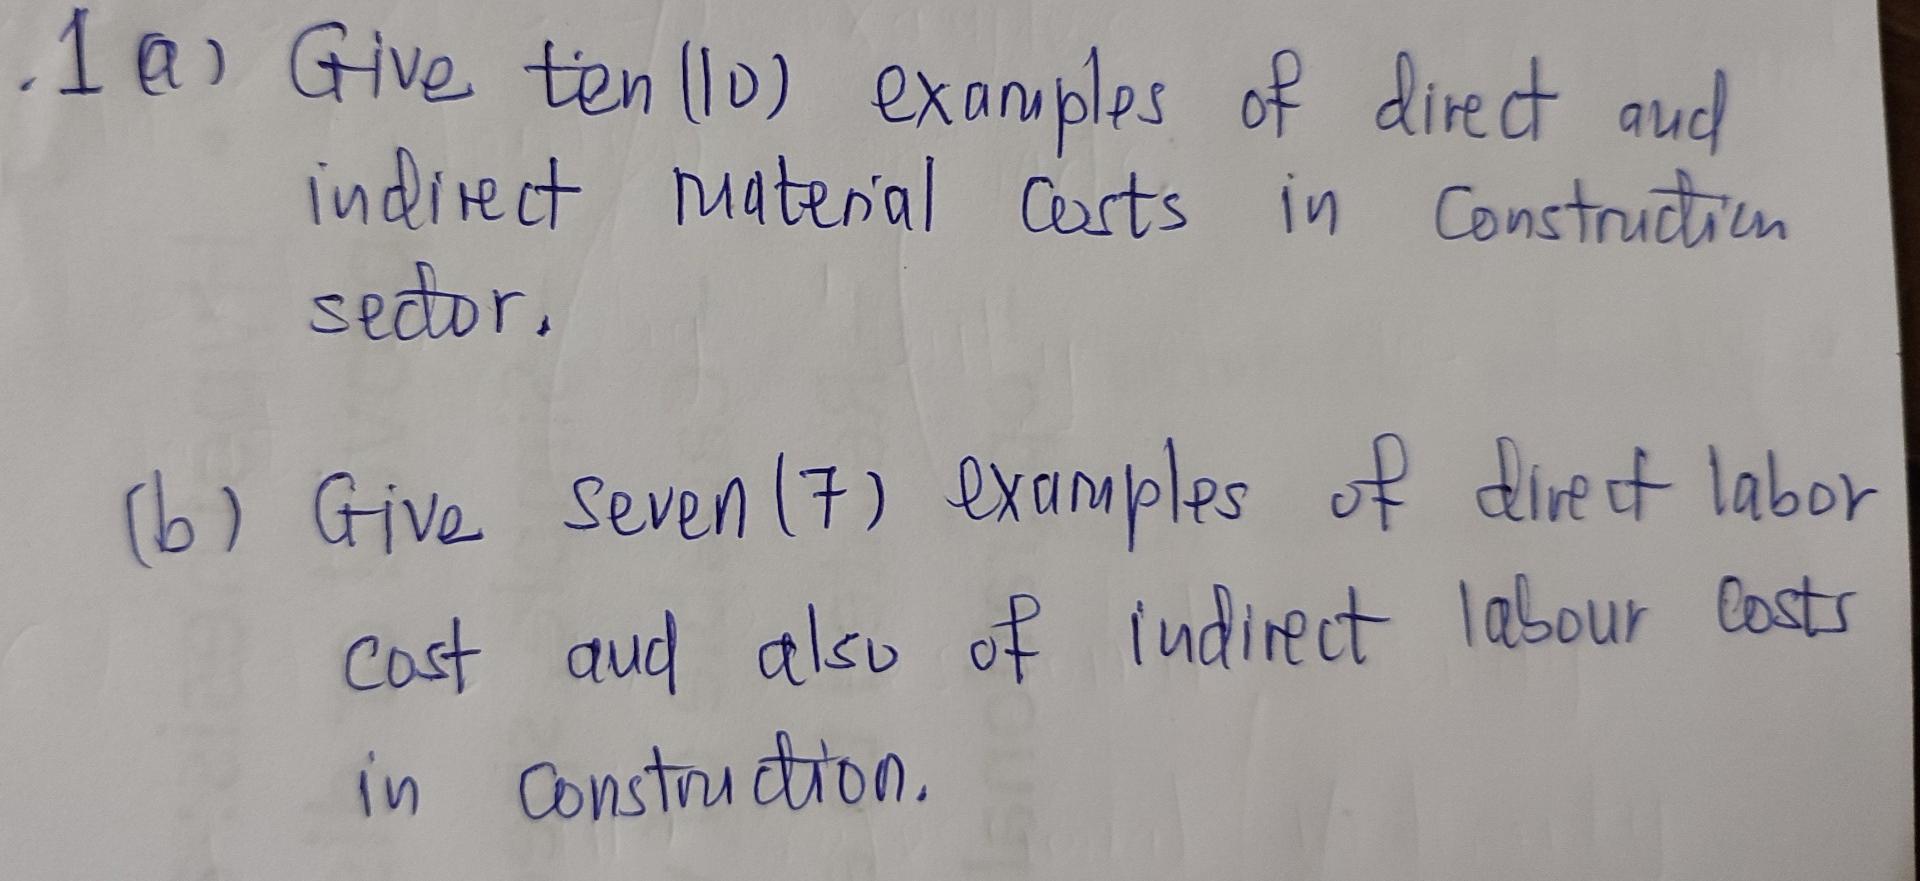 .1 a) Give ten (10) examples of direct and
indirect material costs in construction
sector.
(b) Give seven (7) examples of direct labor
cost and also of indirect labour costs
in construction.